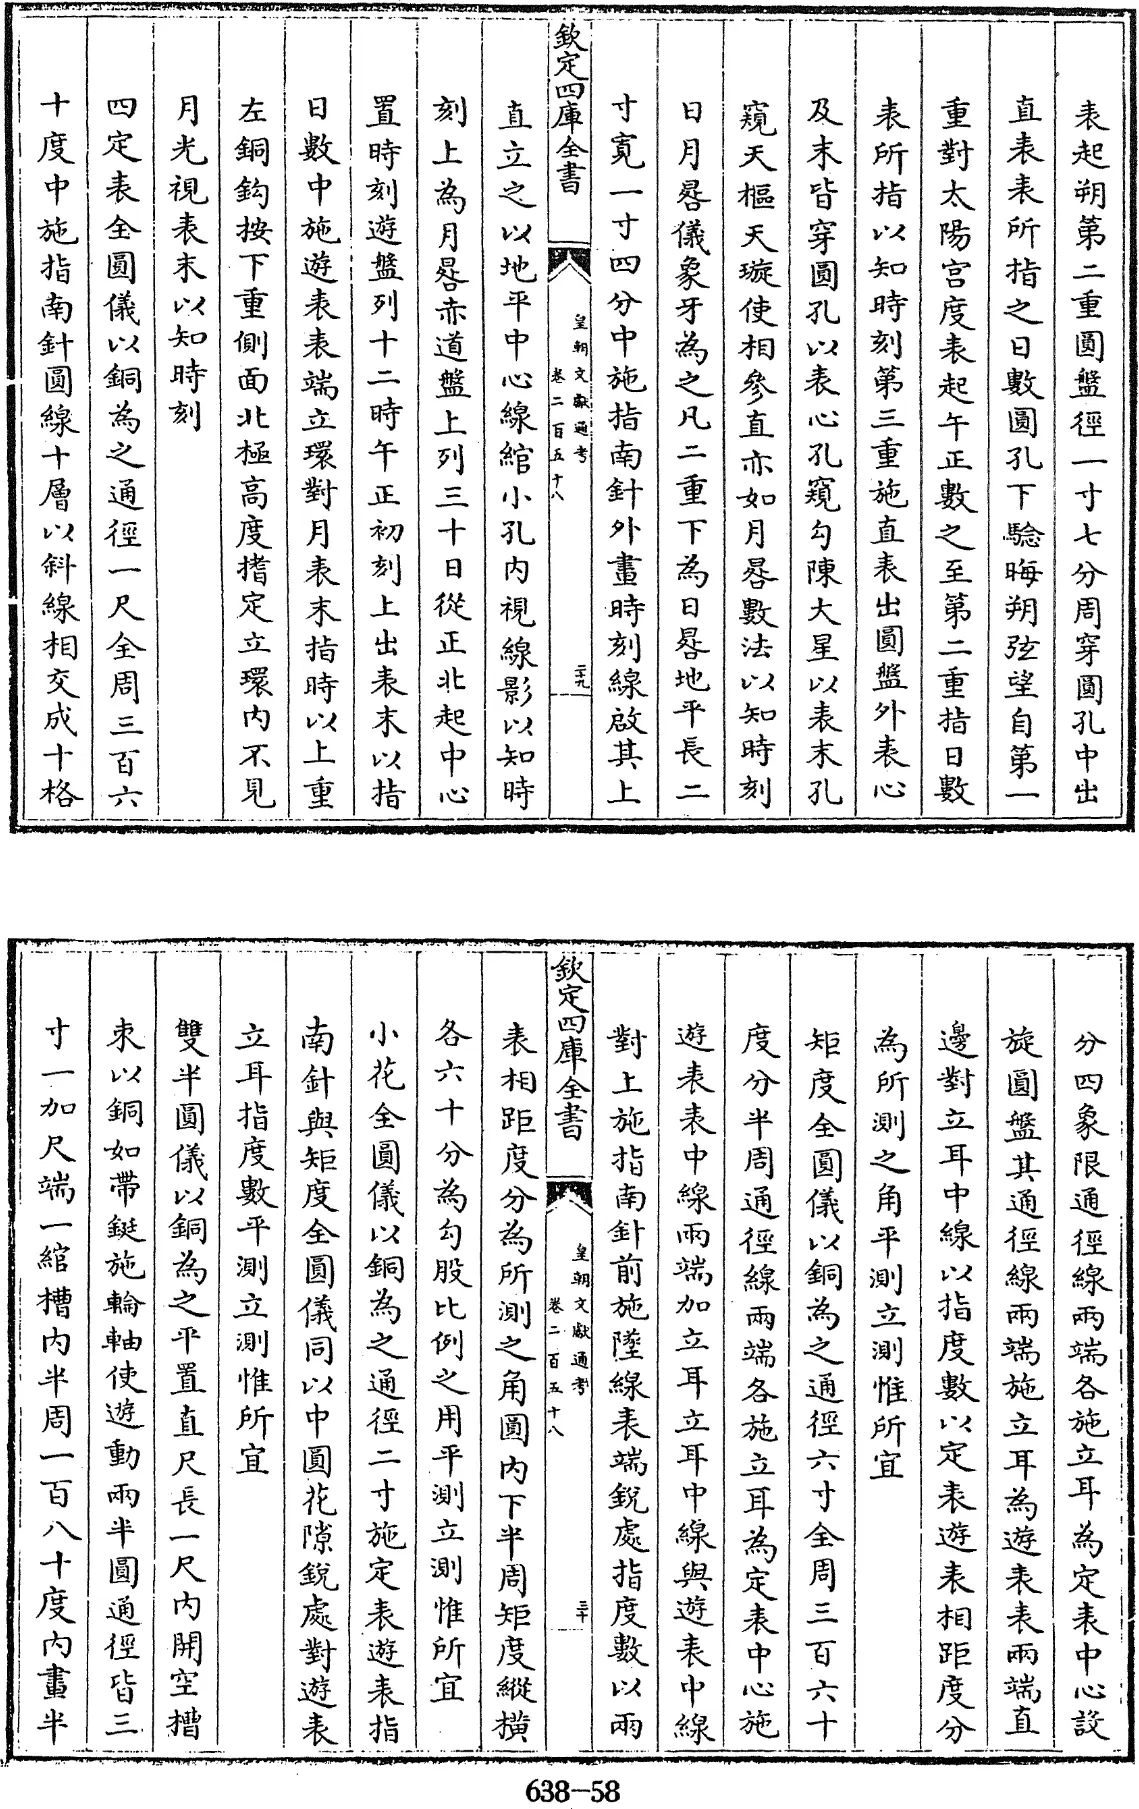 表起朔第二重圓盤徑一寸七分周穿圓孔中出
直表表所指之日數圓孔下驗晦朔弦望自第一
重對太陽宫度表起午正數之至第二重指日數
表所指以知時刻第三重施直表出圓盤外表心
及末皆穿圓孔以表心孔窺勾陳大星以表末孔
窺天樞天璇使相參直亦如月晷數法以知時刻
日月晷儀象牙為之凡二重下為日晷地平長二
寸寬一寸四分中施指南針外畫時刻線啟其上
欽定四庫全書
皇朝文獻通考
卷二百五十八
二十九
直立之以地平中心線綰小孔内視線影以知時
刻上為月晷赤道盤上列三十日從正北起中心
置時刻遊盤列十二時午正初刻上出表末以指
日數中施遊表表端立環對月表末指時以上重
左銅鈎按下重側面北極高度揩定立環内不見
月光視表末以知時刻
四定表全圓儀以銅為之通徑一尺全周三百六
十度中施指南針圓線十層以斜線相交成十格
分四象限通徑線兩端各施立耳為定表中心設
旋圓盤其通徑線兩端施立耳為遊表表兩端直
邊對立耳中線以指度數以定表遊表相距度分
為所測之角平測立測惟所宜
矩度全圓儀以銅為之通徑六寸全周三百六十
度分半周通徑線兩端各施立耳為定表中心施
遊表表中線兩端加立耳立耳中線與遊表中線
對上施指南針前施墜線表端鋭處指度數以兩
欽定四庫全書
皇朝文獻通考
卷二百五十八
三十
表相距度分為所測之角圓内下半周矩度縱横
各六十分為勾股比例之用平測立測惟所宜
小花全圓儀以銅為之通徑二寸施定表遊表指
南針與矩度全圓儀同以中圓花隙鋭處對遊表
立耳指度數平測立測惟所宜
雙半圓儀以銅為之平置直尺長一尺内開空槽
束以銅如帶鋌施輪軸使遊動兩半圓通徑皆三
寸一加尺端一綰槽内半周一百八十度内畫半
638-58